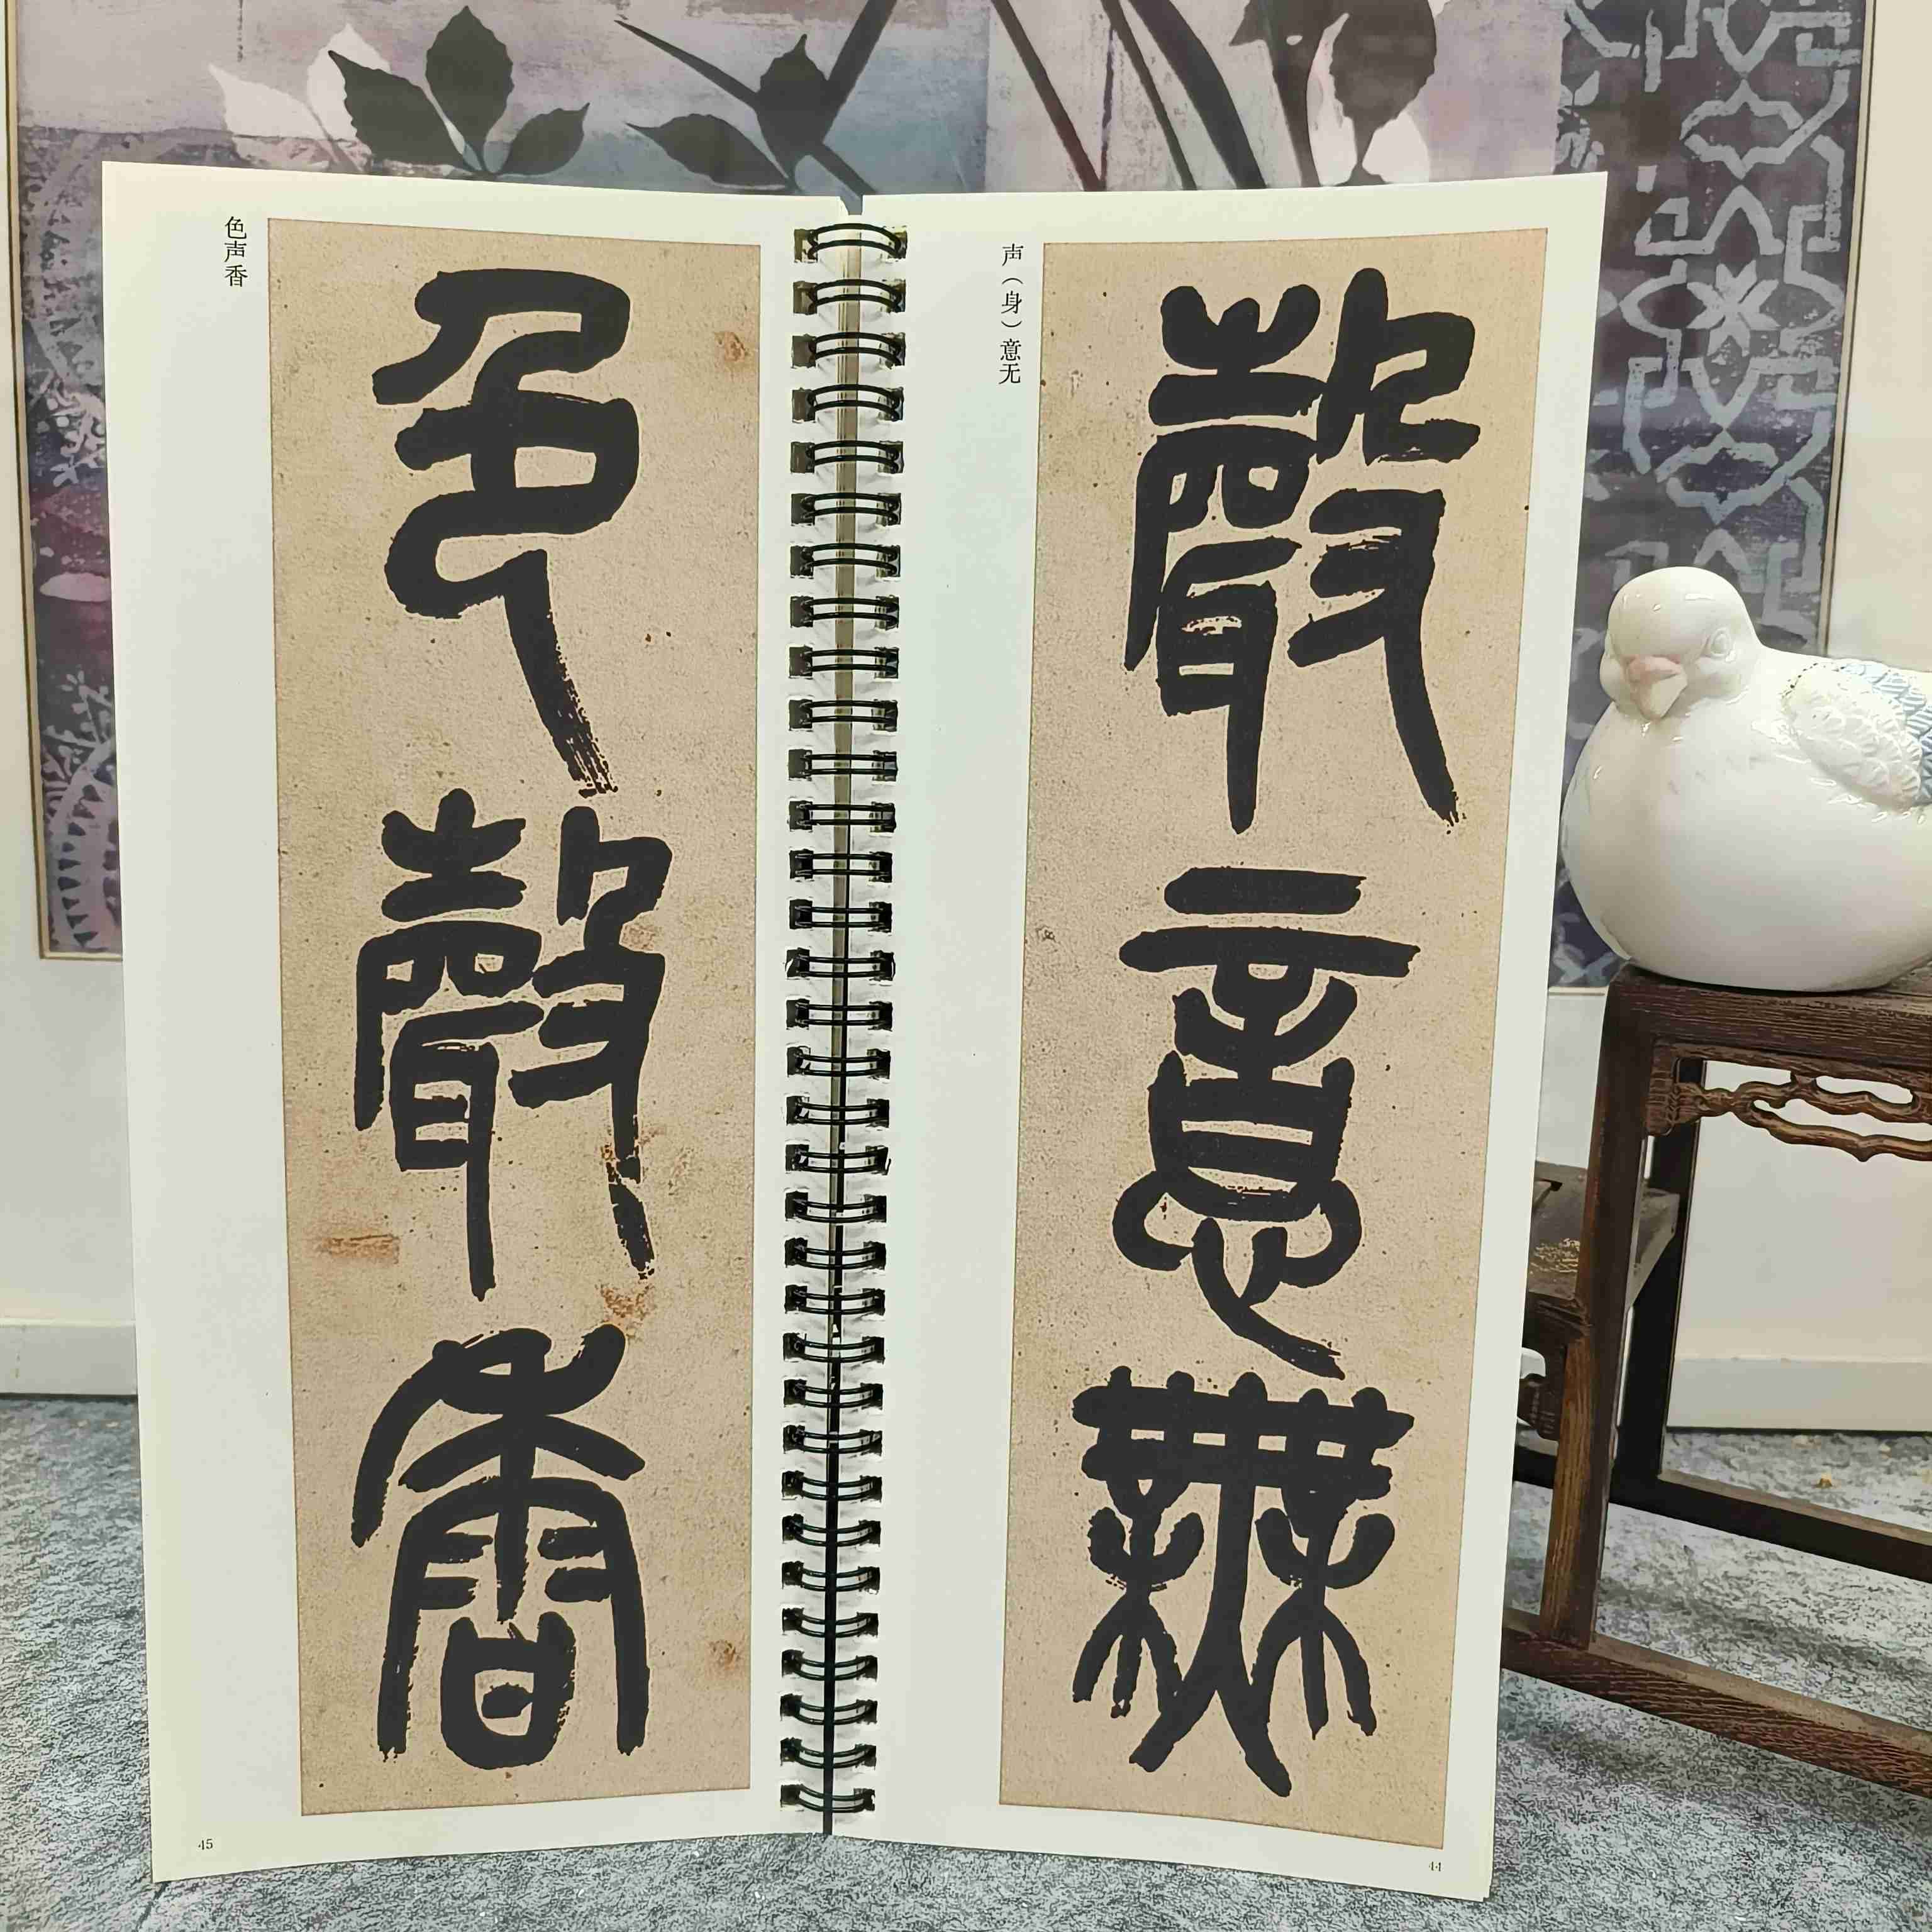 声（身）意无
聲意無
44
色声香
色聲香
45